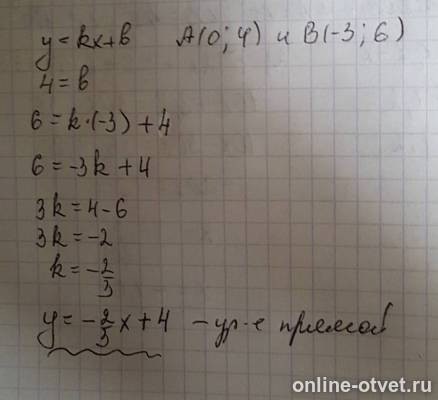 y = kx + b A(0; 4) и B(-3; 6)
4 = b
6 = k·(-3) + 4
6 = -3k + 4
3k = 4 - 6
3k = -2
k = -2/3
y = -2/3 x + 4 - ур-е прямой
online-otvet.ru